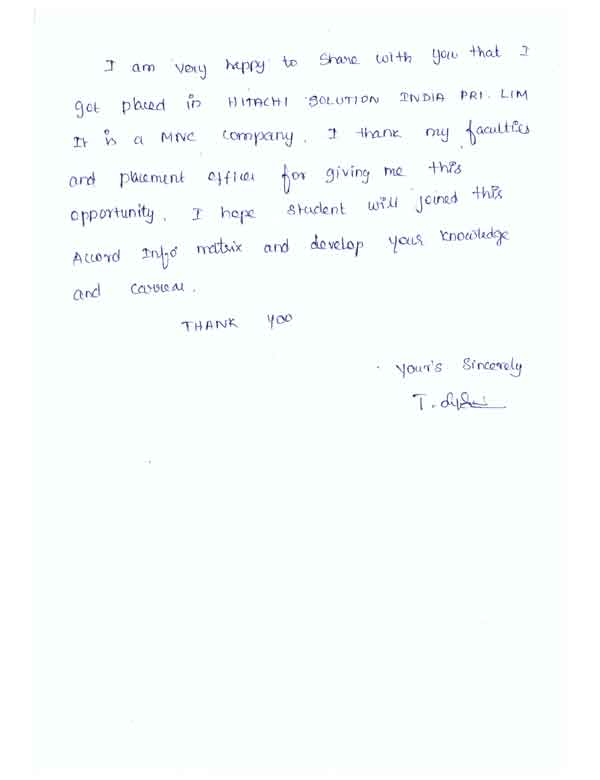 I am very happy to share with you that I
got placed in HITACHI SOLUTION INDIA PRI. LIM
It is a MNC company. I thank my faculties
and placement officer for giving me this
opportunity. I hope student will joined this
Accord Info matrix and develop your knowledge
and carrear.
THANK YOU
Your's Sincerely
T.